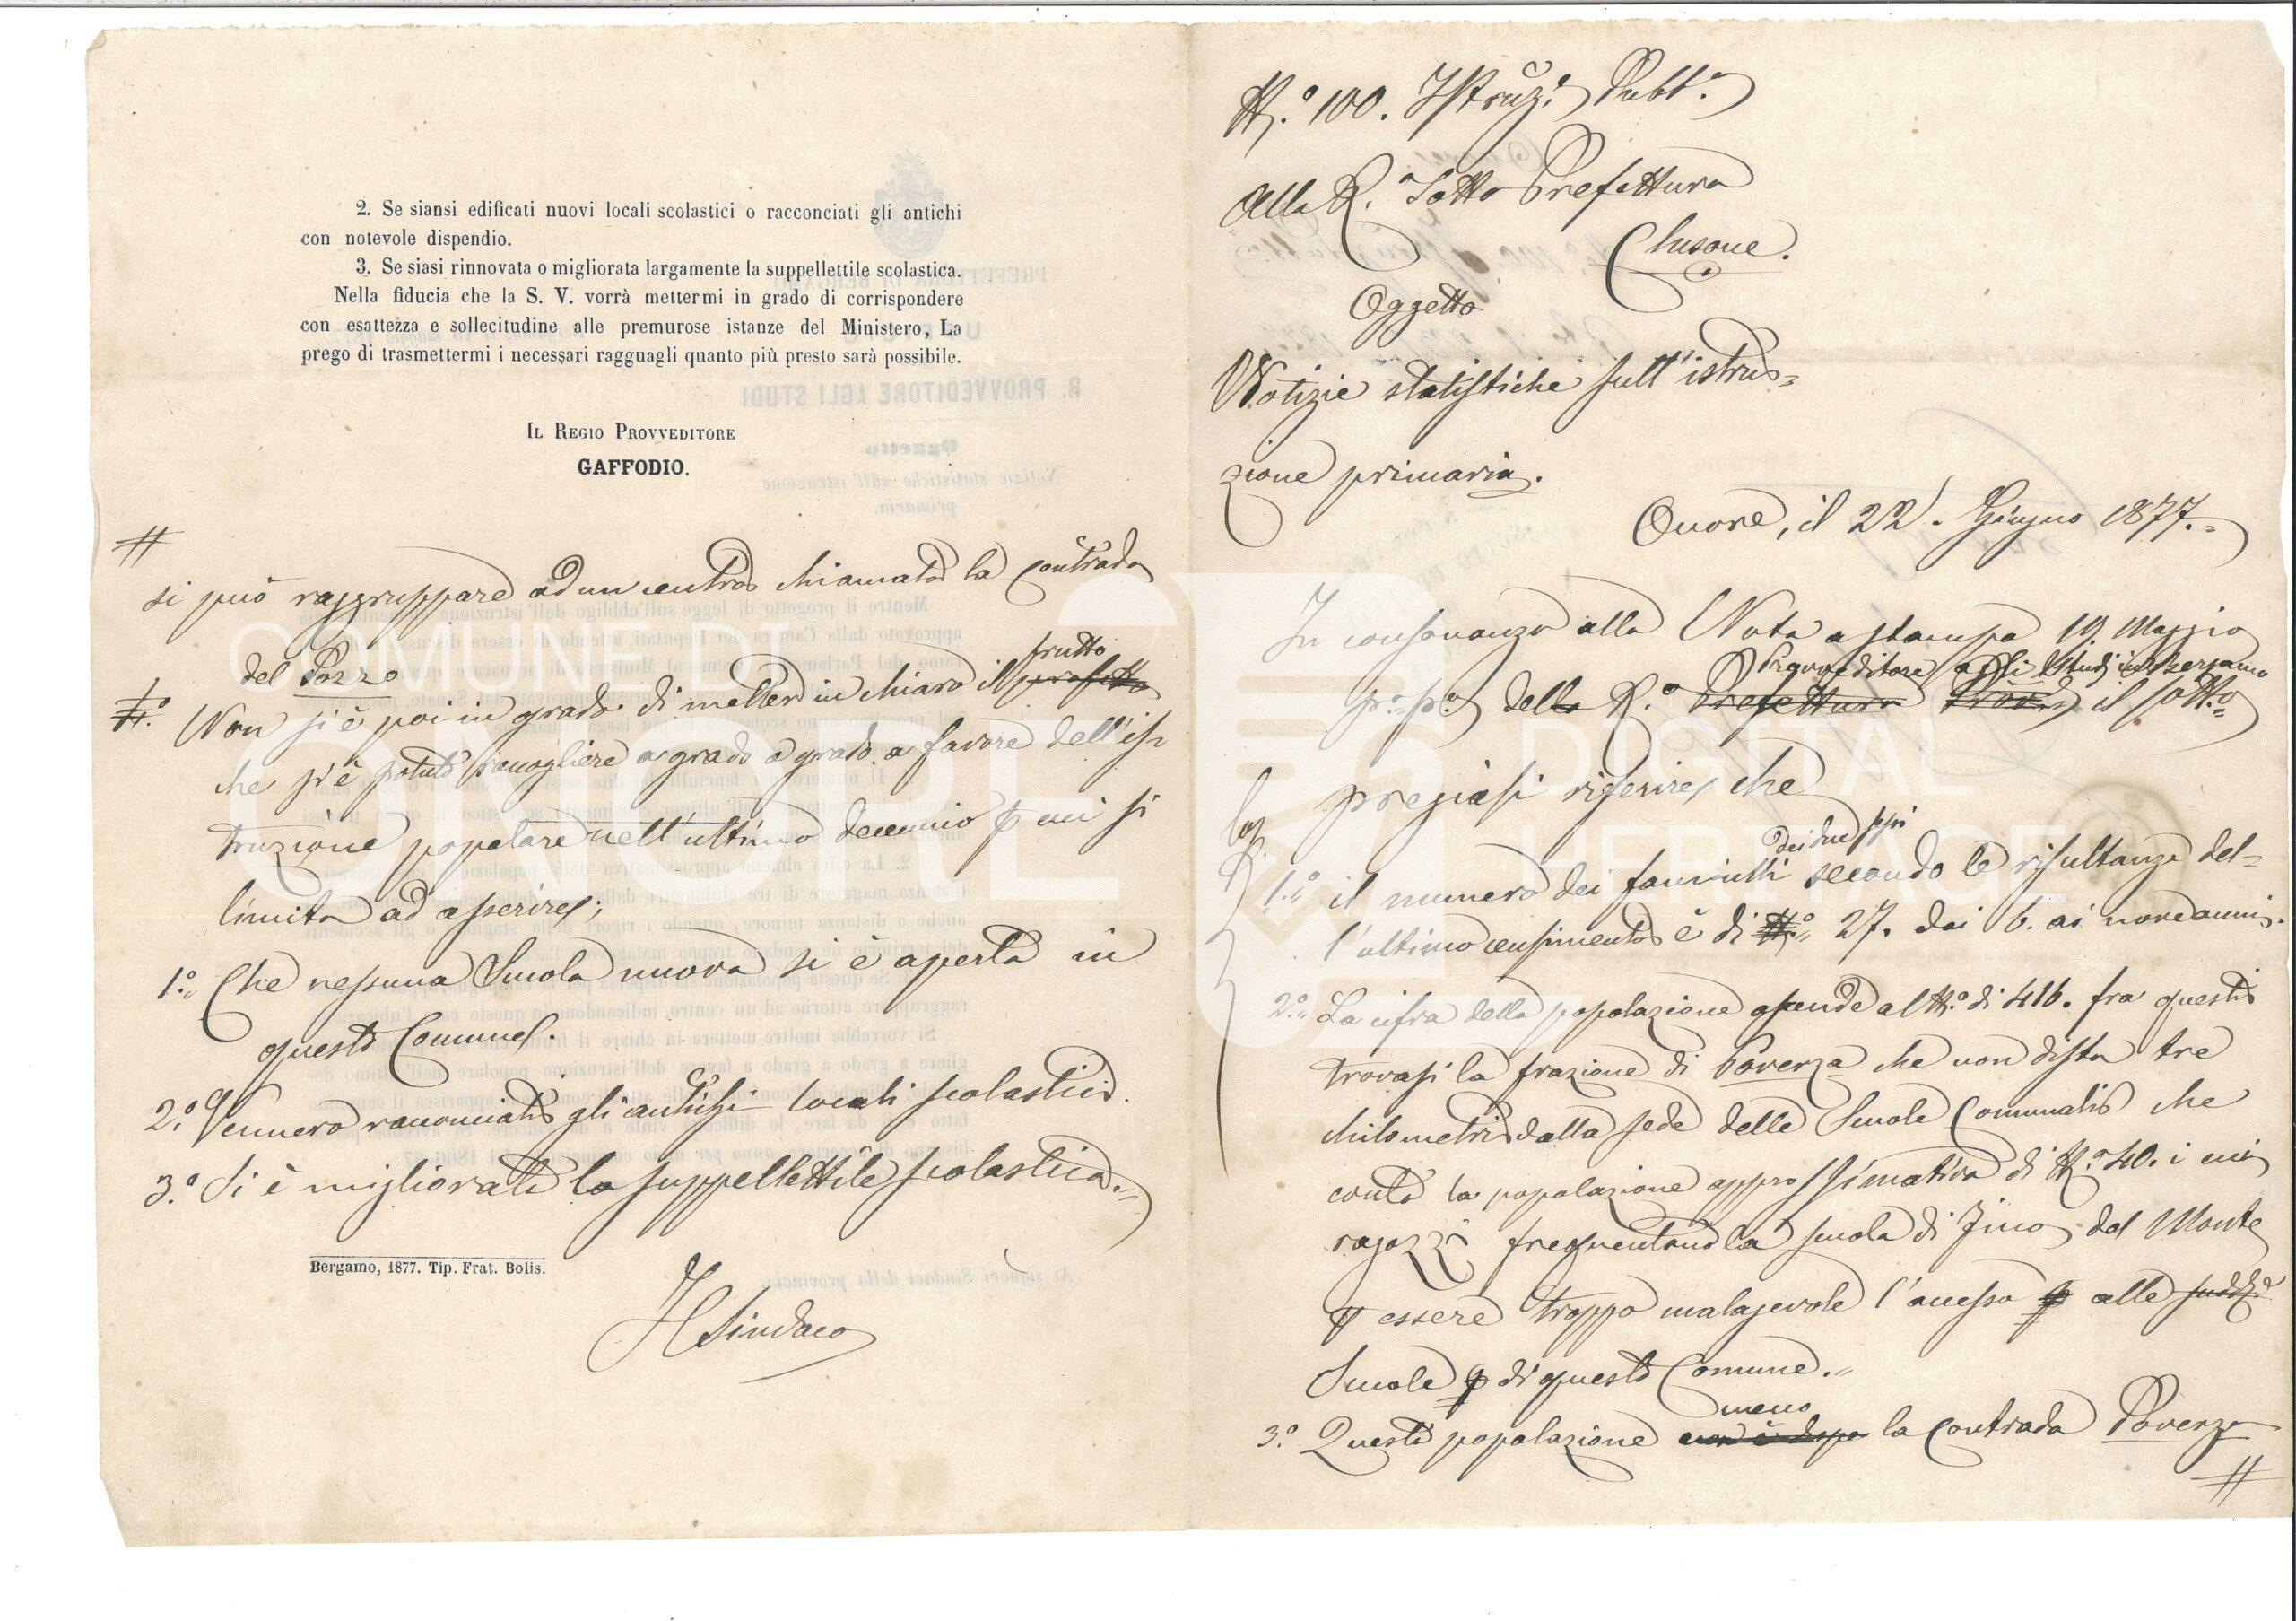 2. Se siansi edificati nuovi locali scolastici o racconciati gli antichi
con notevole dispendio.
3. Se siasi rinnovata o migliorata largamente la suppellettile scolastica.
Nella fiducia che la S. V. vorrà mettermi in grado di corrispondere
con esattezza e sollecitudine alle premurose istanze del Ministero, La
prego di trasmettermi i necessari ragguagli quanto più presto sarà possibile.
IL REGIO PROVVEDITORE
GAFFODIO.
#
si può raggruppare ad un centro chiamato la contrada
del Pozzo
frutto
Non si è poi in grado di metter in chiaro il profitto
che s'è potuto raccogliere a grado a grado a favore dell'is
truzione popolare nell'ultimo decennio cui si
limita ad asserire;
1.° Che nessuna Scuola nuova si è aperta in
questo Comune.
2.° Vennero racconciati gli antichi locali scolastici.
3.° Si è migliorata la suppellettile scolastica.
Bergamo, 1877. Tip. Frat. Bolis.
Il Sindaco
N.° 100. Istruz.e Pubb.a
Alla R.a Sotto Prefettura
Clusone.
Oggetto
Notizie statistiche sull'istru=
zione primaria.
Onore, il 22. Giugno 1877.
In consonanza alla Nota a stampa 19. Maggio
Provveditore agli Studi in Bergamo
p.° p.° della R.a Prefettura il sotto=
pregiasi riferire, che
dei due sessi
1.° il numero dei fanciulli secondo le risultanze del=
l'ultimo censimento è di N.° 27. dai 6. ai nove anni.
2.° La cifra della popolazione ascende al N.° di 416. fra questi
trovasi la frazione di Poverza che non dista tre
chilometri dalla sede delle Scuole Comunali che
conta la popolazione approssimativa di N.° 40. i cui
ragazzi frequentano la scuola di Fino del Monte
essere troppo malagevole l'accesso alle
Scuole di questo Comune.
meno
3.° Questa popolazione non è la contrada Poverza
#